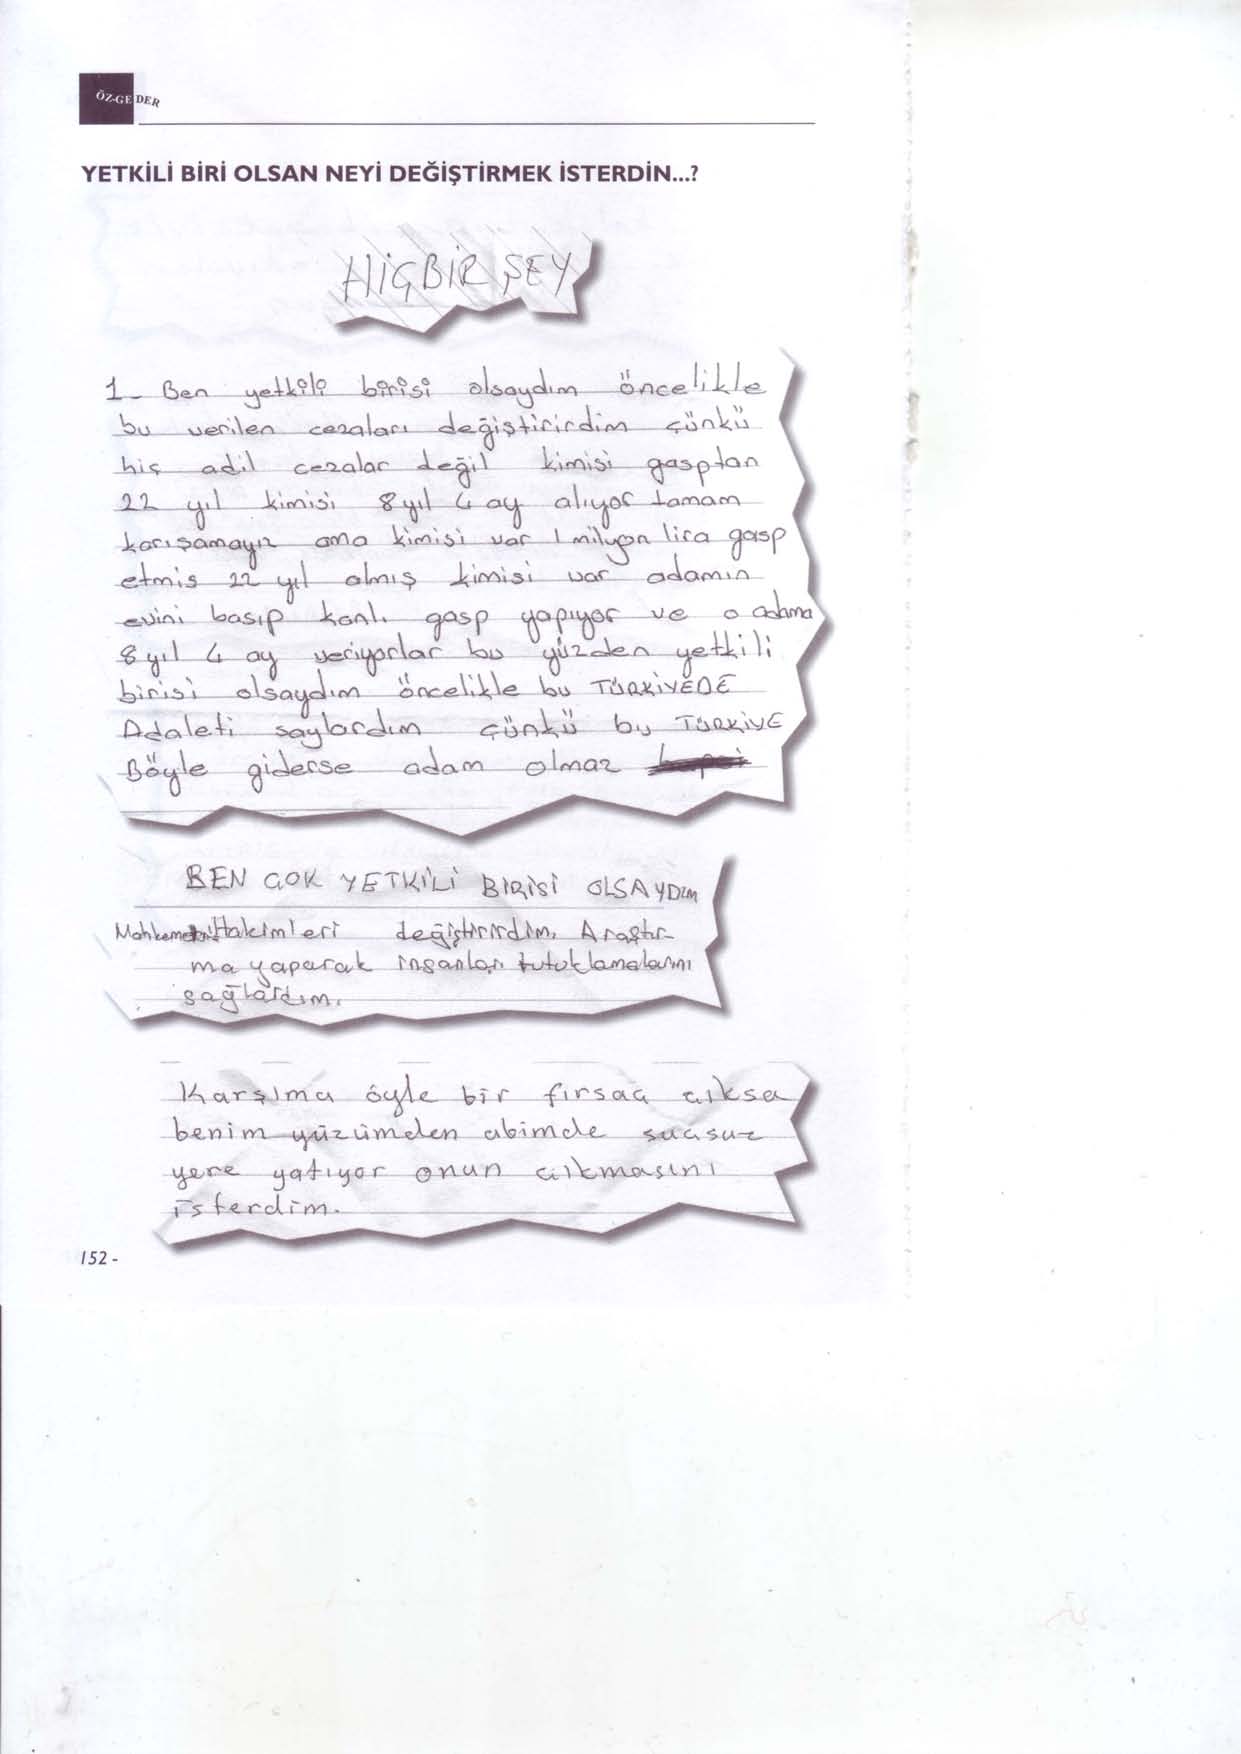 ÖZ-GE DER
YETKİLİ BİRİ OLSAN NEYİ DEĞİŞTİRMEK İSTERDİN...?
HİÇBİR ŞEY
1- Ben yetkili birisi olsaydım öncelikle
bu verilen cezaları değiştirirdim çünkü
hiç adil cezalar değil kimisi gasptan
22 yıl kimisi 8 yıl 4 ay alıyor tamam
karışamayız ama kimisi var 1 milyon lira gasp
etmis 22 yıl almış kimisi var adamın
evini basıp kanlı gasp yapıyor ve o adama
8 yıl 4 ay veriyorlar bu yüzden yetkili
birisi olsaydım öncelikle bu TÜRKİYEDE
Adaleti saylardım çünkü bu TÜRKİYE
Böyle giderse adam olmaz
BEN ÇOK YETKİLİ BİRİSİ OLSAYDIM
Hakimleri değiştirirdim. Araştır-
ma yaparak insanları tutuklamalarını
sağlardım.
Karşıma öyle bir fırsaç çıksa
benim yüzümden abimde suçsuz
yere yatıyor onun çıkmasını
isterdim.
152 -